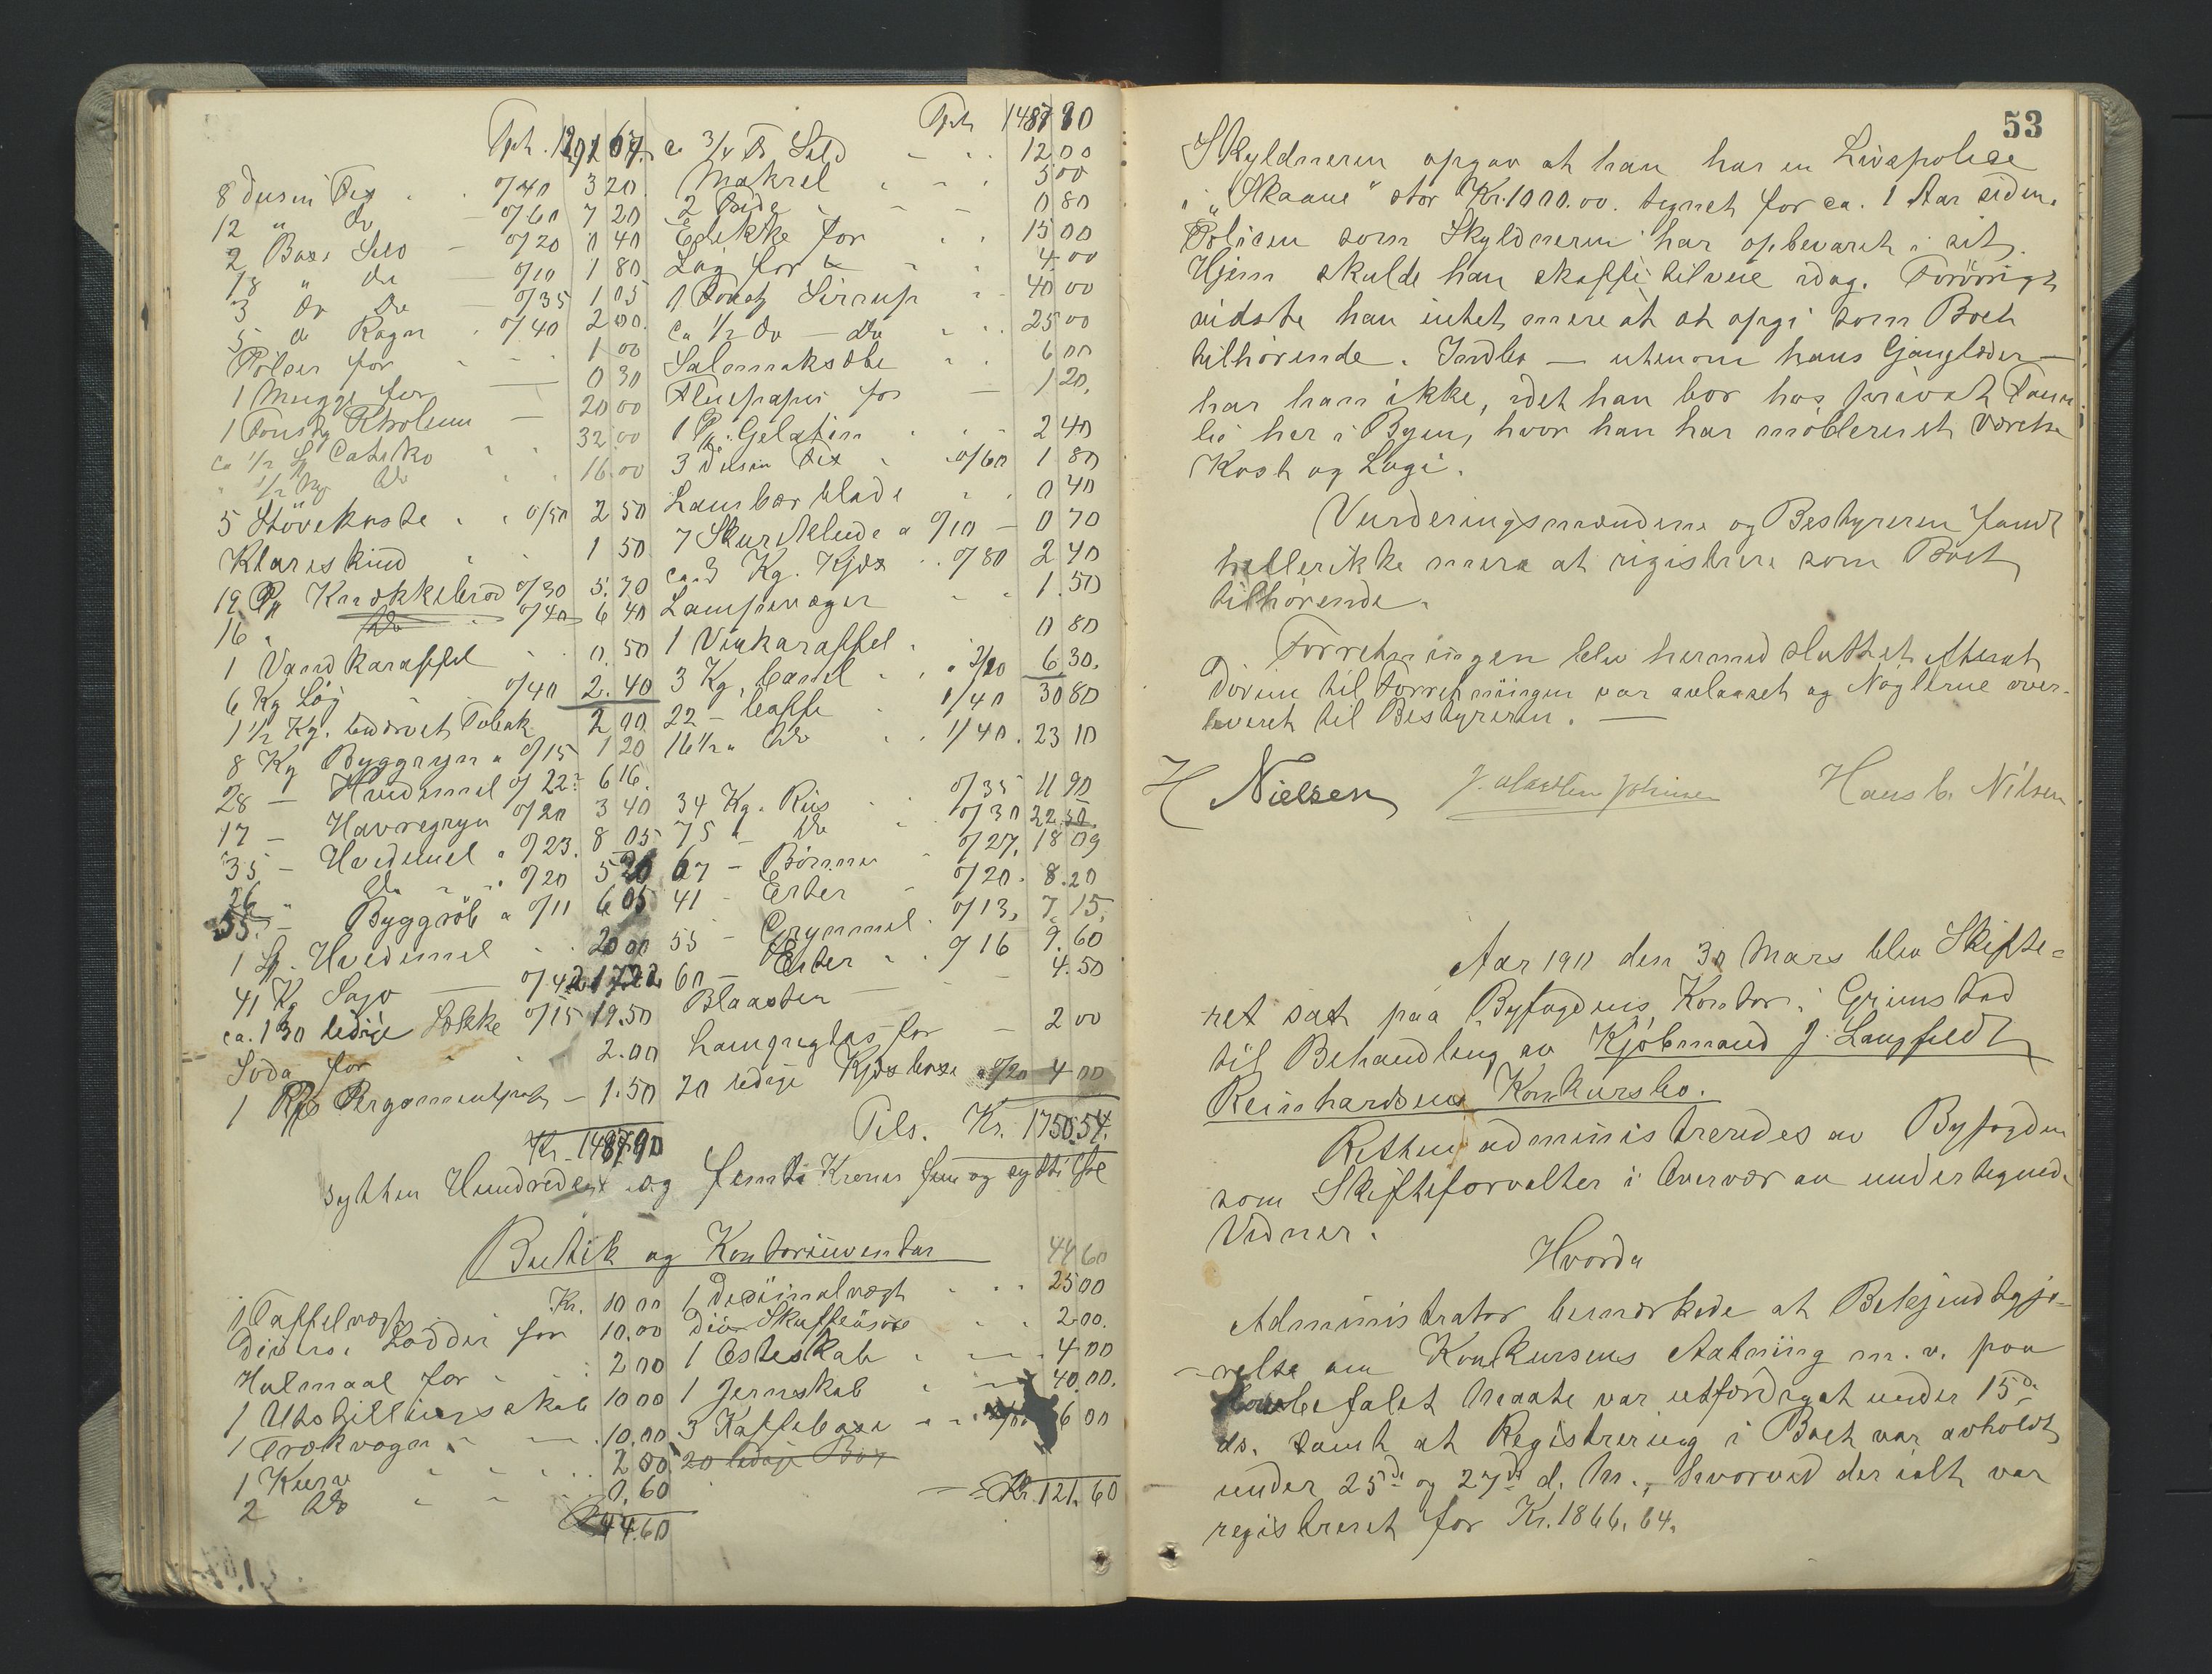 8 Dusin Fix 0/40 3 20
12 " do 0/60 7 20
2 Boxe Sild 0/20 0 40
18 " do 0/10 1 80
3 do do 0/35 1 05
5 do Rogn 0/40 2 00
Pölser for 1 00
1 Mugge for 0 30
1 20 00
ca 1/2 32 00
" 1/2 do 16.00
5 Stövekoste 0/50 2 50
Klareskind 1 50
19 Pk Knækkebröd 0/30 5.70
16 " do 0/40 6 40
1 Vandkaraffel 0.50
6 Kg Løg 0/40 2.40
1 1/2 Kg. Tobak 2 00
8 Kg Byggryn a 0/15 1 20
28 — Hvedemel 0/22 6 16
17 — Havregryn 0/20 3 40
35 — Hvedemel a 0/23. 8 05
26 " do 0/20 5 20
55 — Byggröb a 0/11 6 05
1 Hvedemel 20 00
41 Kg Sago 0/42 17.22
ca. 130 ledige Sække 0/15 19.50
Soda for 2.00
1 — 1.50
Kr. 1487 90
Tpt 1487 90
ca 3/4 Sild 12 00
Makrel 5 00
2 0 80
Eddikke for 15 00
Lög for 4.00
1 Sirrup 40 00
ca 1/2 do — do 25 00
Salmiaksæbe 6 00
Fluepapir for — 1 20.
1 Gelatin 2 40
3 Dusin Fix 0/60 1 80
0 40
7 Skureklude a 0/10 — 0 70
ca. 3 Kg. Kjæx 0/80 2 40
Lampevæger 1.50
1 Vinkaraffel 0 80
3 Kg. Canel 2/10 6 30.
22 — Caffe 1/40 30 80
16 1/2 " do 1/40. 23 10
34 Kg. Ris 0/35 11 90
75 " do 0/30 22.50.
67 — Bönner 0/27. 18 09
41 — Erter 0/20. 8.20
55 — Grynmel 0/13, 7.15,
60 — Erter 0/16 9.60
Blaasten — 4.50
Lampeglas for — 2 00
20 ledige Kjæxboxe a 0/20 4 00
Tils. Kr. 1750.54.
sytten Hundrede og femti Kroner fem og
Butik og Kontorinventar
1 Taffelvægt Kr. 10 00
Diverse Lodder for 10.00
Hulmaal for 2 00
1 Utstillingsskab 10 00
1 Trækvogn 10.00
1 Kurv 2 00
2 do 0.60
44.60
44 60
1 Decimalvægt 25 00
Div Skuffer 2.00.
1 Osteskab 4 00
1 Jernskab 40.00.
3 Kaffeboxe 6 00
20 ledige Box
Kr. 121.60
53
Skyldneren opgav at han har en Livspolice
i "Skaane" stor Kr. 1000.00. tegnet for ca. 1 Aar siden.
Policen som Skyldneren har opbevaret i sit
Hjem skulde han skaffe tilveie idag. Forövrigt
vidste han intet mere at at opgi som Boet
tilhörende. Indbo — utenom hans Gangklæder —
har han ikke, idet han bor hos privat Fami
lie her i Byen, hvor han har möbleret Værelse
Kost og Logi.
Vurderingsmændene og Bestyreren fandt
hellerikke mere at registrere som Boet
tilhörende.
Forretningen blev hermed sluttet efterat
Dören til Forretningen var avlaaset og Nöglerne over-
leveret til Bestyreren. —
H Nielsen J. Martin Johnsen Hans C. Nilsen
Aar 1911 den 30 Mars blev Skifte=
ret sat paa Byfogdens Kontor i Grimstad
til Behandling av Kjöbmand J. Langfeldt
Reinhardsens Konkursbo.
Retten administreredes av Byfogden
som Skifteforvalter i Overvær av undertegnede
Vidner.
Hvorda
Administrator bemærkede at Bekjendtgjö=
relse om Konkursens Aabning m. v. paa
lovbefalet Maate var utfærdiget under 15de
ds. samt at Registrering i Boet var avholdt
under 25de og 27de d. M., hvorved der ialt var
registreret for Kr. 1866.64.